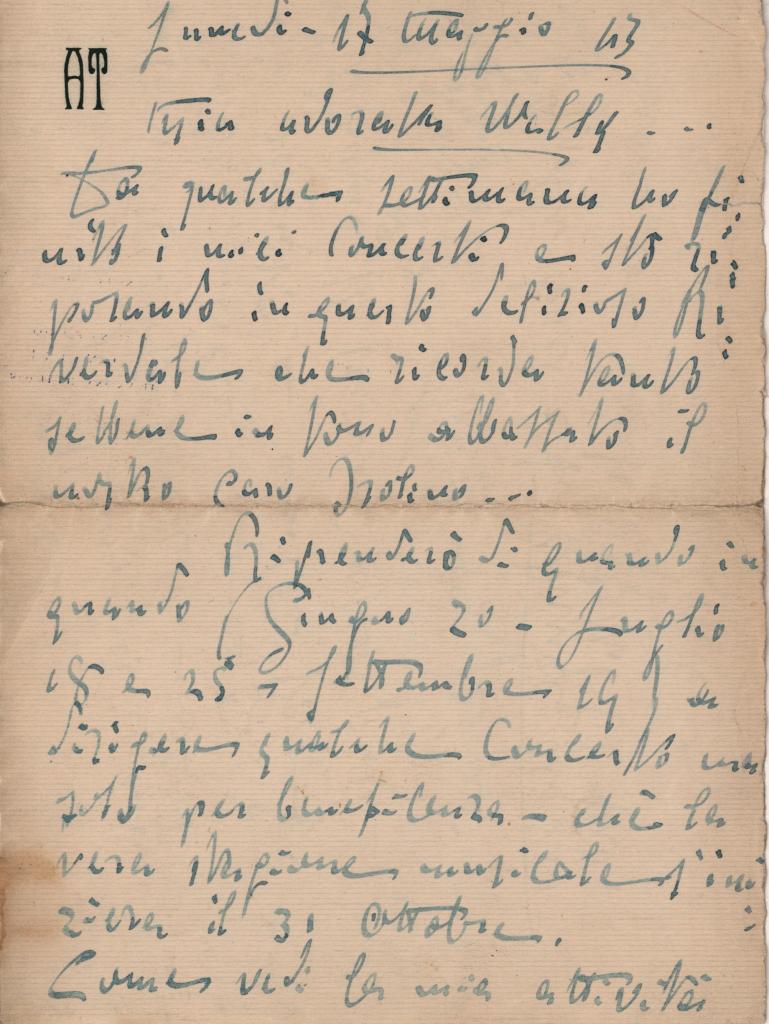 Lunedi - 17 Maggio 43
AT
Mia adorata Wally ...
Da qualche settimana ho fi:
nito i miei Concerti e sto ri:
posando in questo delizioso Ri:
verdale che ricorda tanto
sebbene in tono abbassato il
nostro caro Isolino ...
Riprenderò di quando in
quando (Giugno 20 - Luglio
18 e 25 - Settembre 19) a
dirigere qualche Concerto ma
solo per beneficenza - chè la
vera stagione musicale s'ini:
zierà il 31 Ottobre.
Come vedi la mia attività